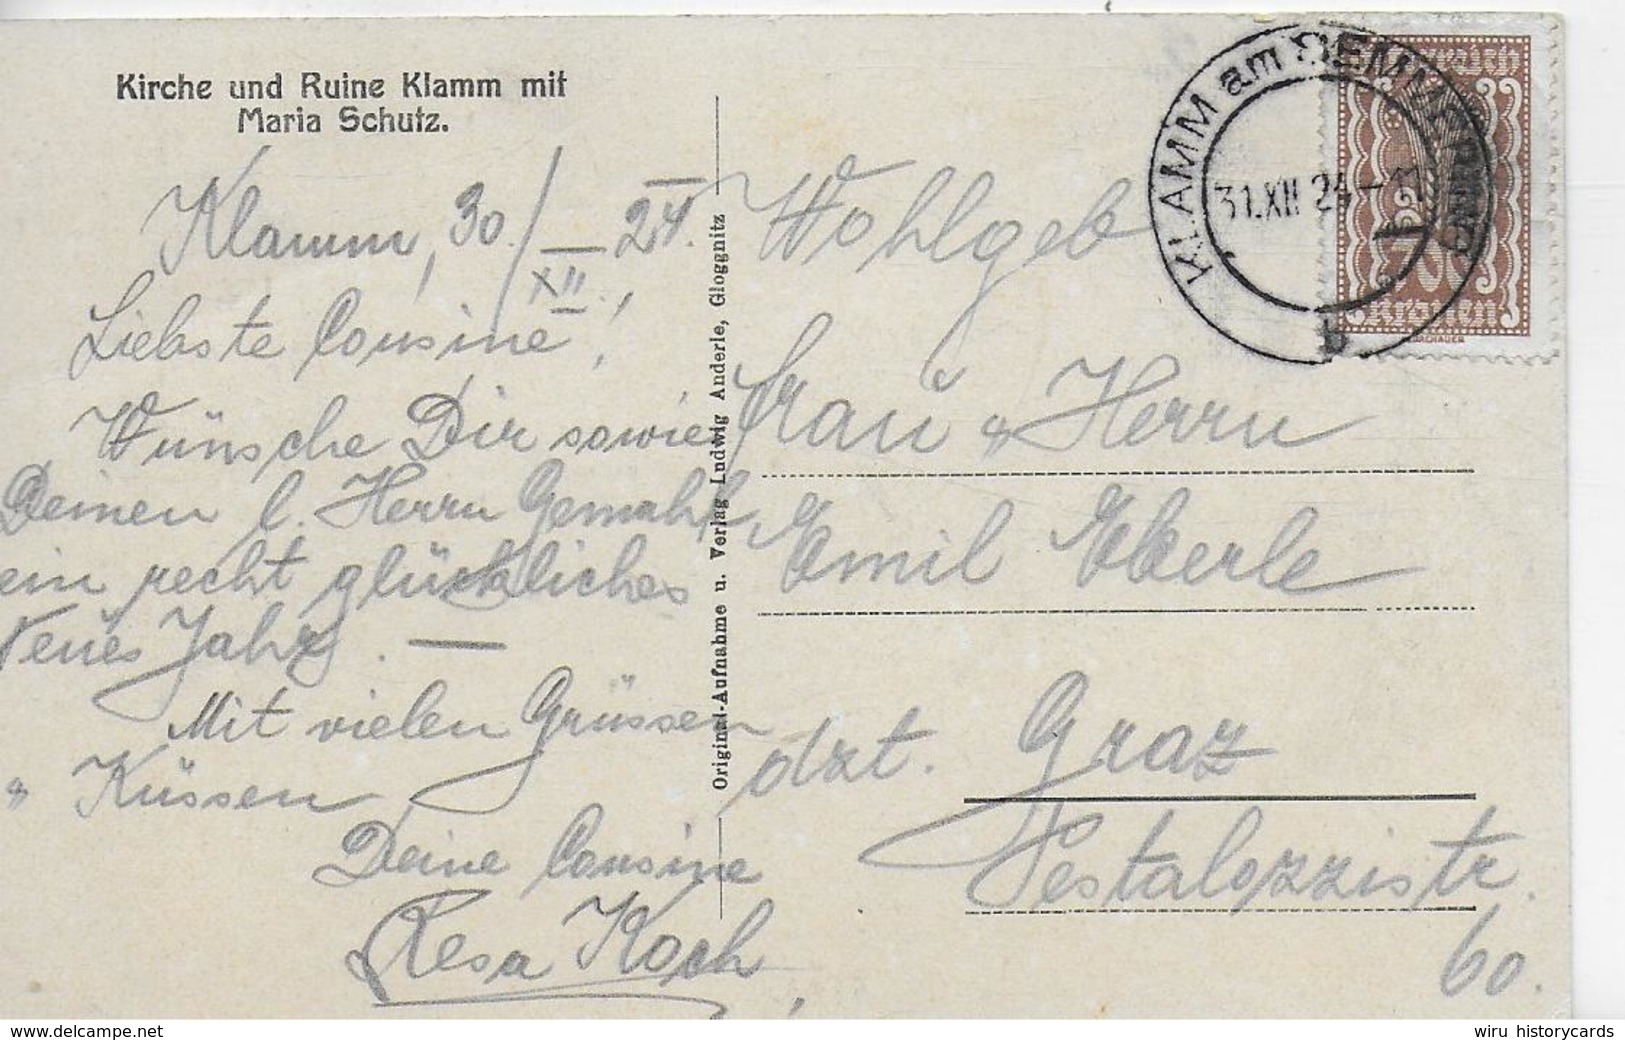 Kirche und Ruine Klamm mit
Maria Schutz.
Klamm, 30./XII. 24.
Liebste Cousine!
Wünsche Dir sowie
Deinen l. Herrn Gemahl,
ein recht glückliches
Neues Jahr. —
Mit vielen Grüssen
& Küssen
Deine Cousine
Resa Koch
Original-Aufnahme u. Verlag Ludwig Anderle, Gloggnitz
KLAMM am SEMMERING
31.XII 24-11
b
Kronen
Wohlgeb
Frau & Herrn
Emil Eberle
dzt. Graz
Pestalozzistr.
60.
wiru historycards